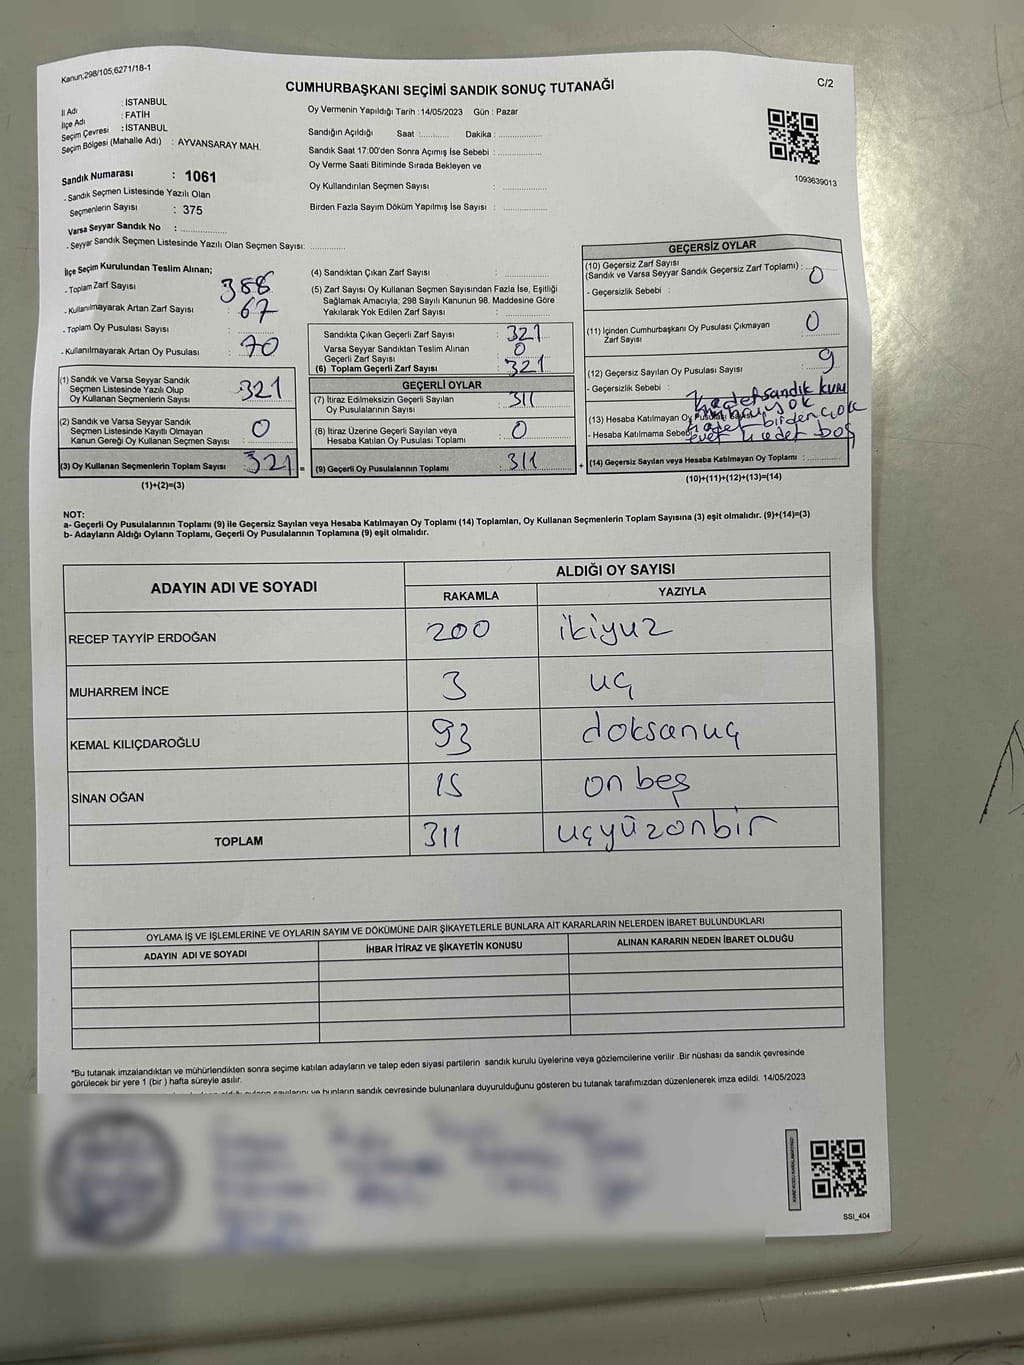 Kanun.298/105,6271/18-1
CUMHURBAŞKANI SEÇİMİ SANDIK SONUÇ TUTANAĞI
C/2
İl Adı : İSTANBUL
İlçe Adı : FATİH
Seçim Çevresi : İSTANBUL
Seçim Bölgesi (Mahalle Adı) : AYVANSARAY MAH.
Sandık Numarası : 1061
- Sandık Seçmen Listesinde Yazılı Olan
Seçmenlerin Sayısı : 375
Varsa Seyyar Sandık No :
- Seyyar Sandık Seçmen Listesinde Yazılı Olan Seçmen Sayısı:
Oy Vermenin Yapıldığı Tarih : 14/05/2023 Gün : Pazar
Sandığın Açıldığı Saat : Dakika :
Sandık Saat 17:00'den Sonra Açımış İse Sebebi :
Oy Verme Saati Bitiminde Sırada Bekleyen ve
Oy Kullandırılan Seçmen Sayısı :
Birden Fazla Sayım Döküm Yapılmış İse Sayısı :
1093639013
İlçe Seçim Kurulundan Teslim Alınan;
- Toplam Zarf Sayısı 388
- Kullanılmayarak Artan Zarf Sayısı 67
- Toplam Oy Pusulası Sayısı :
- Kullanılmayarak Artan Oy Pusulası : 70
(1) Sandık ve Varsa Seyyar Sandık
Seçmen Listesinde Yazılı Olup
Oy Kullanan Seçmenlerin Sayısı : 321
(2) Sandık ve Varsa Seyyar Sandık
Seçmen Listesinde Kayıtlı Olmayan
Kanun Gereği Oy Kullanan Seçmen Sayısı : 0
(3) Oy Kullanan Seçmenlerin Toplam Sayısı 321 =
(1)+(2)=(3)
(4) Sandıktan Çıkan Zarf Sayısı :
(5) Zarf Sayısı Oy Kullanan Seçmen Sayısından Fazla İse, Eşitliği
Sağlamak Amacıyla; 298 Sayılı Kanunun 98. Maddesine Göre
Yakılarak Yok Edilen Zarf Sayısı :
Sandıkta Çıkan Geçerli Zarf Sayısı : 321
Varsa Seyyar Sandıktan Teslim Alınan
Geçerli Zarf Sayısı : 0
(6) Toplam Geçerli Zarf Sayısı : 321
GEÇERLİ OYLAR
(7) İtiraz Edilmeksizin Geçerli Sayılan
Oy Pusulalarının Sayısı : 311
(8) İtiraz Üzerine Geçerli Sayılan veya
Hesaba Katılan Oy Pusulası Toplamı : 0
(9) Geçerli Oy Pusulalarının Toplamı : 311 +
GEÇERSİZ OYLAR
(10) Geçersiz Zarf Sayısı
(Sandık ve Varsa Seyyar Sandık Geçersiz Zarf Toplamı) : 0
- Geçersizlik Sebebi :
(11) İçinden Cumhurbaşkanı Oy Pusulası Çıkmayan
Zarf Sayısı : 0
(12) Geçersiz Sayılan Oy Pusulası Sayısı : 9
- Geçersizlik Sebebi :
adet sandık kuru
mührü yok
(13) Hesaba Katılmayan Oy Pusulası Sayısı
adet birden çok
- Hesaba Katılmama Sebebi
evet adet boş
(14) Geçersiz Sayılan veya Hesaba Katılmayan Oy Toplamı :
(10)+(11)+(12)+(13)=(14)
NOT:
a- Geçerli Oy Pusulalarının Toplamı (9) ile Geçersiz Sayılan veya Hesaba Katılmayan Oy Toplamı (14) Toplamları, Oy Kullanan Seçmenlerin Toplam Sayısına (3) eşit olmalıdır. (9)+(14)=(3)
b- Adayların Aldığı Oyların Toplamı, Geçerli Oy Pusulalarının Toplamına (9) eşit olmalıdır.
ADAYIN ADI VE SOYADI
ALDIĞI OY SAYISI
RAKAMLA YAZIYLA
RECEP TAYYİP ERDOĞAN 200 ikiyuz
MUHARREM İNCE 3 uç
KEMAL KILIÇDAROĞLU 93 doksanuç
SİNAN OĞAN 15 on beş
TOPLAM 311 uçyüzonbir
OYLAMA İŞ VE İŞLEMLERİNE VE OYLARIN SAYIM VE DÖKÜMÜNE DAİR ŞİKAYETLERLE BUNLARA AİT KARARLARIN NELERDEN İBARET BULUNDUKLARI
ADAYIN ADI VE SOYADI İHBAR İTİRAZ VE ŞİKAYETİN KONUSU ALINAN KARARIN NEDEN İBARET OLDUĞU
*Bu tutanak imzalandıktan ve mühürlendikten sonra seçime katılan adayların ve talep eden siyasi partilerin sandık kurulu üyelerine veya gözlemcilerine verilir .Bir nüshası da sandık çevresinde
görülecek bir yere 1 (bir ) hafta süreyle asılır.
sayılarını ve bunların sandık çevresinde bulunanlara duyurulduğunu gösteren bu tutanak tarafımızdan düzenlenerek imza edildi. 14/05/2023
SSI_404